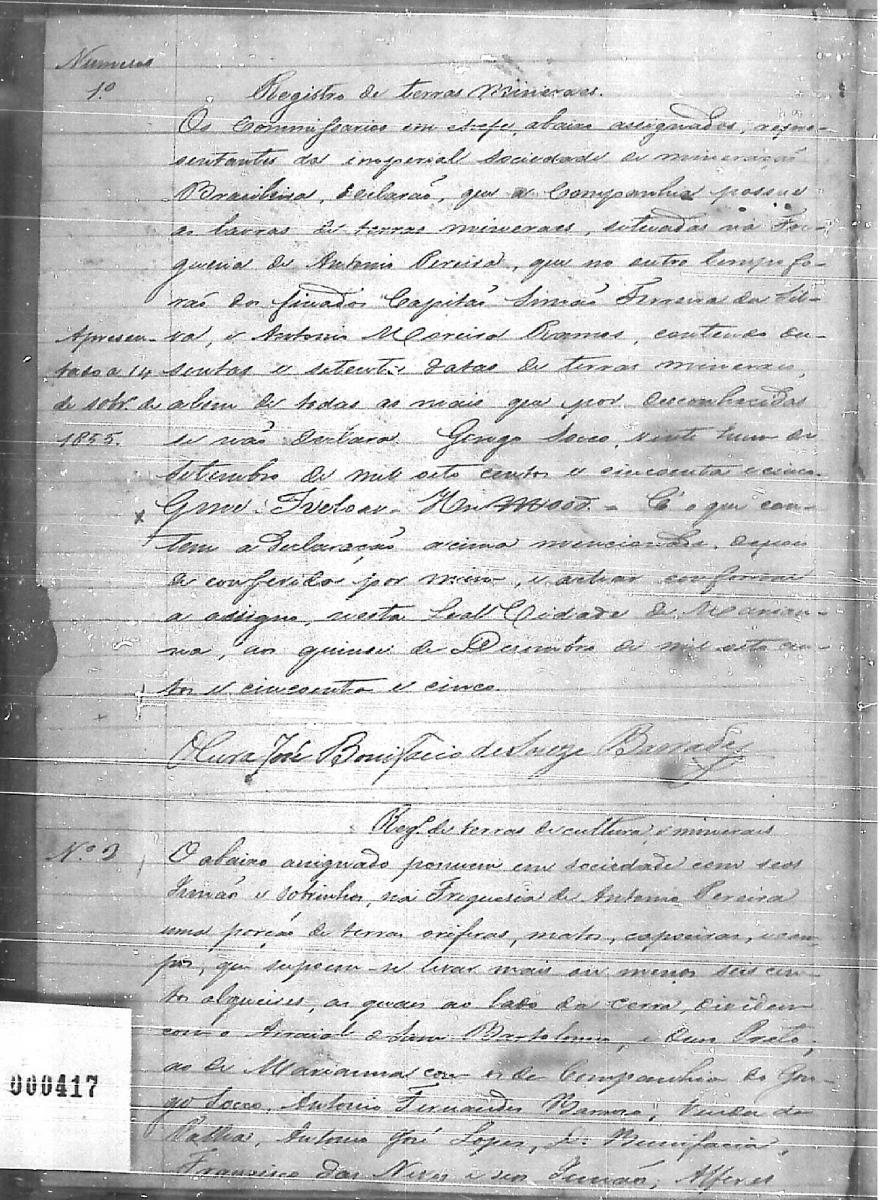 Numeros
1º
Registro de terras Mineraes.
Os Commissarios em chefe, abaixo assignados, repre-
sentantes da imperial sociedade de mineração
Brasileira, declarão, que a Companhia possue
as lavras de terras mineraes, situadas na Fre-
guesia de Antonio Pereira, que no outro tempo fo-
rão dos finados Capitão Simão Ferreira da Sil-
Apresen- va, e Antonio Moreira Ramos, contendo du-
tado a 14 sentas e setenta datas de terras mineraes,
de sobr. de alem de todas as mais que por desconhecidas
1855. se não declara. Gongo Socco, vinte hum de
Setembro de mil oito centos e cincoenta e cinco.
Gme. - É o que con-
tem a declaração acima mencionada, depois
de conferida por mim, e achar conforme
a assigno, nesta Leal Cidade de Marian-
na, aos quinze de Dezembro de mil oito cen-
tos e cincoenta e cinco.
José Bonifacio de Souza Barradas
Regº de terras de cultura, e minerais
Nº 2 O abaixo assignado possuem em sociedade com seos
Irmão e sobrinhos, na Freguesia de Antonio Pereira
uma porção de terras oriferas, matos, capoeiras, e cam-
pos, que supoem-se levar mais ou menos seis cen-
tos alqueires, as quaes ao lado da cerra, dividem
com o Arraial de Sam Bartolomeu, e Ouro Preto,
ao de Marianna com os da Companhia do Gon-
go Socco, Antonio Fernandes Ramos, Venda da
Palha, Antonio José Lopes, D. Bonifacia,
Francisco das Neves e seos Irmãos, Alferes
000417